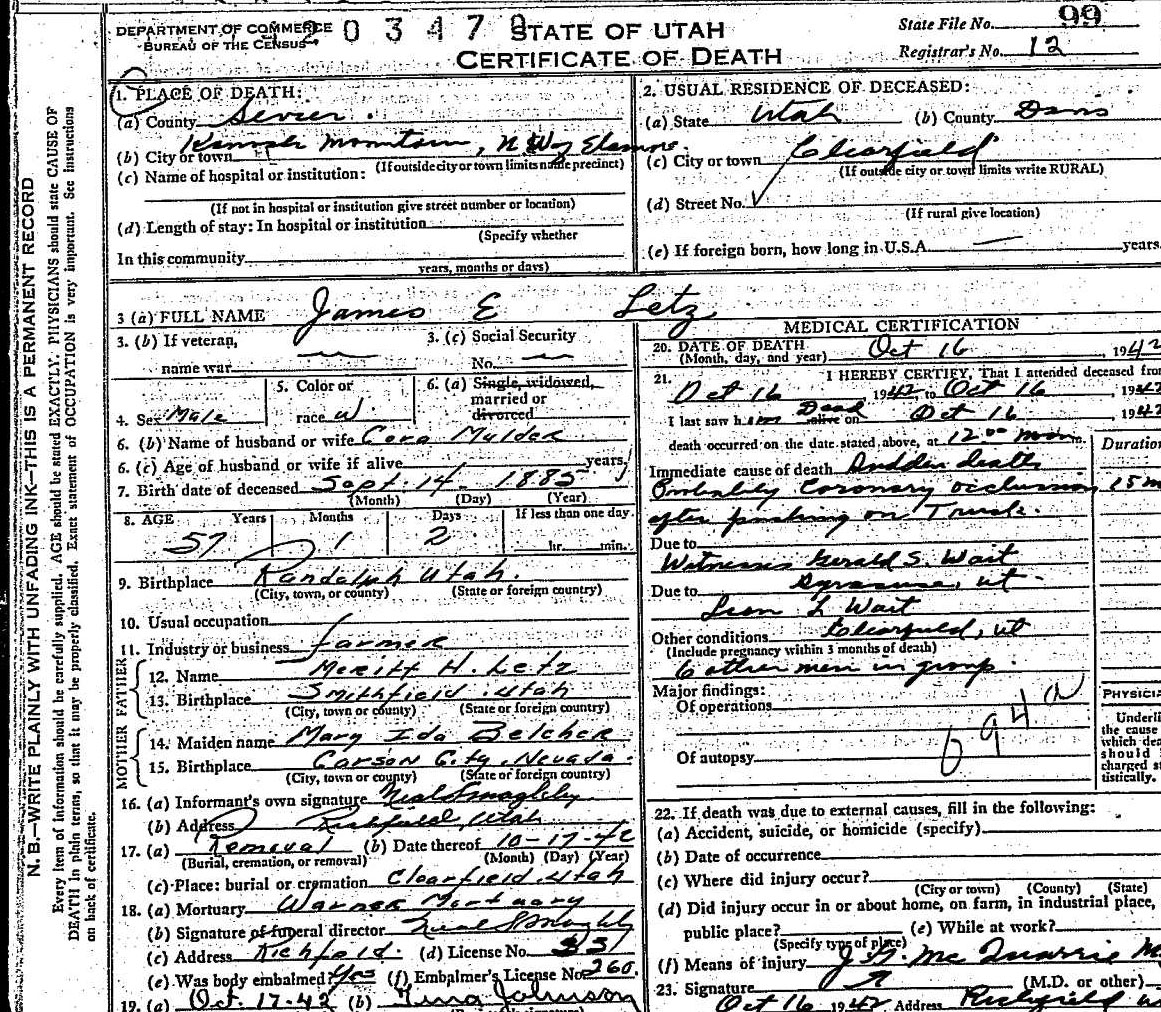 N. B.—WRITE PLAINLY WITH UNFADING INK—THIS IS A PERMANENT RECORD
Every item of information should be carefully supplied. AGE should be stated EXACTLY. PHYSICIANS should state CAUSE OF
DEATH in plain terms, so that it may be properly classified. Exact statement of OCCUPATION is very important. See instructions
on back of certificate.
DEPARTMENT OF COMMERCE
BUREAU OF THE CENSUS
0 3 4 7 9
STATE OF UTAH
CERTIFICATE OF DEATH
State File No. 99
Registrar's No. 12
1. PLACE OF DEATH:
(a) County Sevier.
Kanosh Mountain, N.W. of Elsinore.
(b) City or town
(If outside city or town limits name precinct)
(c) Name of hospital or institution:
(If not in hospital or institution give street number or location)
(d) Length of stay: In hospital or institution
(Specify whether
In this community
years, months or days)
2. USUAL RESIDENCE OF DECEASED:
(a) State Utah (b) County Davis
(c) City or town Clearfield
(If outside city or town limits write RURAL)
(d) Street No.
(If rural give location)
(e) If foreign born, how long in U.S.A. — years.
3 (a) FULL NAME James E Letz
3. (b) If veteran,
name war —
3. (c) Social Security
No. —
4. Sex Male
5. Color or
race W.
6. (a) Single, widowed,
married or
divorced
6. (b) Name of husband or wife Cora Mulder
6. (c) Age of husband or wife if alive years
7. Birth date of deceased Sept. 14 - 1885
(Month) (Day) (Year)
8. AGE Years Months Days If less than one day
57 1 2 hr. min.
9. Birthplace Randolph Utah.
(City, town, or county) (State or foreign country)
10. Usual occupation
11. Industry or business farmer
FATHER
12. Name Meritt H. Letz
13. Birthplace Smithfield, Utah
(City, town or county) (State or foreign country)
MOTHER
14. Maiden name Mary Ida Belcher
15. Birthplace Carson City, Nevada.
(City, town or county) (State or foreign country)
16. (a) Informant's own signature Neal Smagleby
(b) Address Richfield, Utah
17. (a) Removal (b) Date thereof 10-17-42
(Burial, cremation, or removal) (Month) (Day) (Year)
(c) Place: burial or cremation Clearfield, Utah
18. (a) Mortuary Warner Mortuary
(b) Signature of funeral director Neal Smagleby
(c) Address Richfield. (d) License No. 33
(e) Was body embalmed? Yes (f) Embalmer's License No. 260
19. (a) Oct. 17-42 (b) Tina Johnson
MEDICAL CERTIFICATION
20. DATE OF DEATH
(Month, day, and year) Oct 16, 1942
21. I HEREBY CERTIFY, That I attended deceased from
Oct 16 1942, to Oct 16, 1942
I last saw him Dead alive on Oct 16, 1942
death occurred on the date stated above, at 12 00 noon.
Duration
Immediate cause of death Sudden death
Probably Coronary occlusion 15 m
after pushing on Truck.
Due to
Witnesses Gerald S. Wait
Syracuse, Ut.
Due to
Leon L Wait
Clearfield, Ut
Other conditions
(Include pregnancy within 3 months of death)
6 other men in group.
Major findings:
Of operations
94a
Of autopsy
PHYSICIA
Underli
the cause
which dea
should
charged st
tistically.
22. If death was due to external causes, fill in the following:
(a) Accident, suicide, or homicide (specify)
(b) Date of occurrence
(c) Where did injury occur?
(City or town) (County) (State)
(d) Did injury occur in or about home, on farm, in industrial place,
public place? (e) While at work?
(Specify type of place)
(f) Means of injury
J. G. McQuarrie M
23. Signature (M.D. or other)
Oct 16 1942 Address Richfield